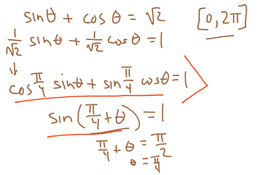 sinθ + cosθ = √2 [0,2π]
1/√2 sinθ + 1/√2 cosθ = 1
↓
cos π/4 sinθ + sin π/4 cosθ = 1
sin(π/4 + θ) = 1
π/4 + θ = π/2
θ = π/4